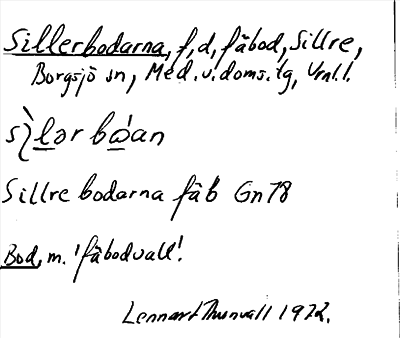 Sillerbodarna, f,d, fäbod, Sillre,
Borgsjö sn, Med. v. doms. tg, Vrnl.l.
Sillre bodarna fäb Gn78
Bod, m. 'fäbodvall'.
Lennart Thunvall 1972.